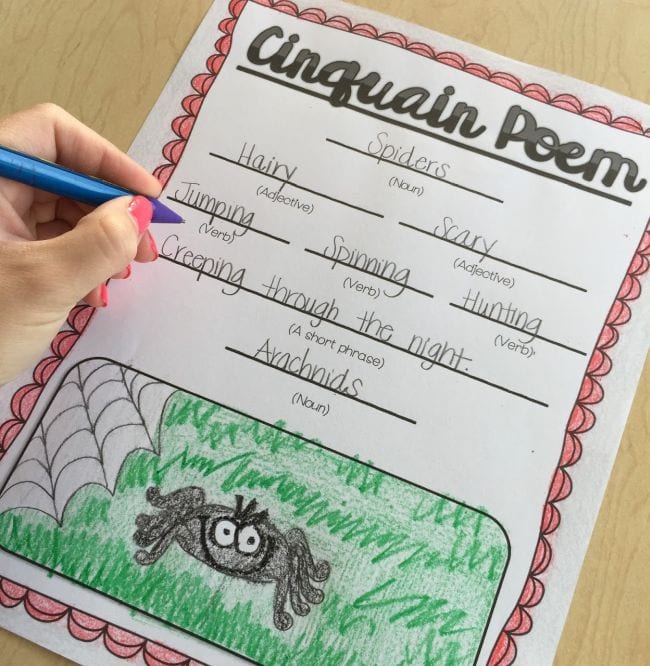 Cinquain Poem
Spiders
(Noun)
Hairy Scary
(Adjective) (Adjective)
Jumping Spinning Hunting
(Verb) (Verb) (Verb)
Creeping through the night.
(A short phrase)
Arachnids
(Noun)